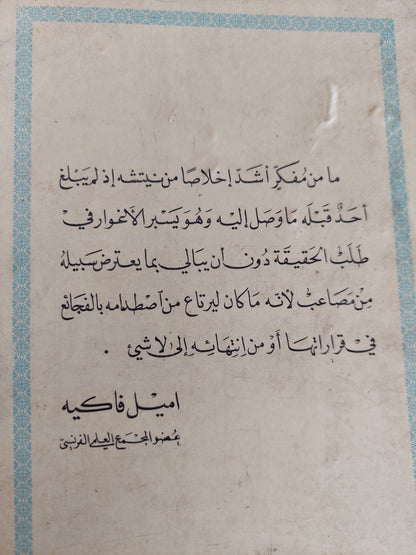 ما من مُفكّرٍ أشدّ إخلاصًا من نيتشه إذ لم يَبلغ
أحدٌ قبْلَه ما وَصل إليه وَهُوَ يَسبر الأغوار في
طلَب الحَقيقَة دُون أن يبَالي بما يعترض سَبيلهُ
مِنْ مَصَاعبْ لأنّه مَا كان ليرتاع من اصْطدامه بالفجائع
في قراراتها أوْ من انتهائِه إلى لا شيئ .
اميل فاكيه
عضو المجمع العلمي الفرنسي